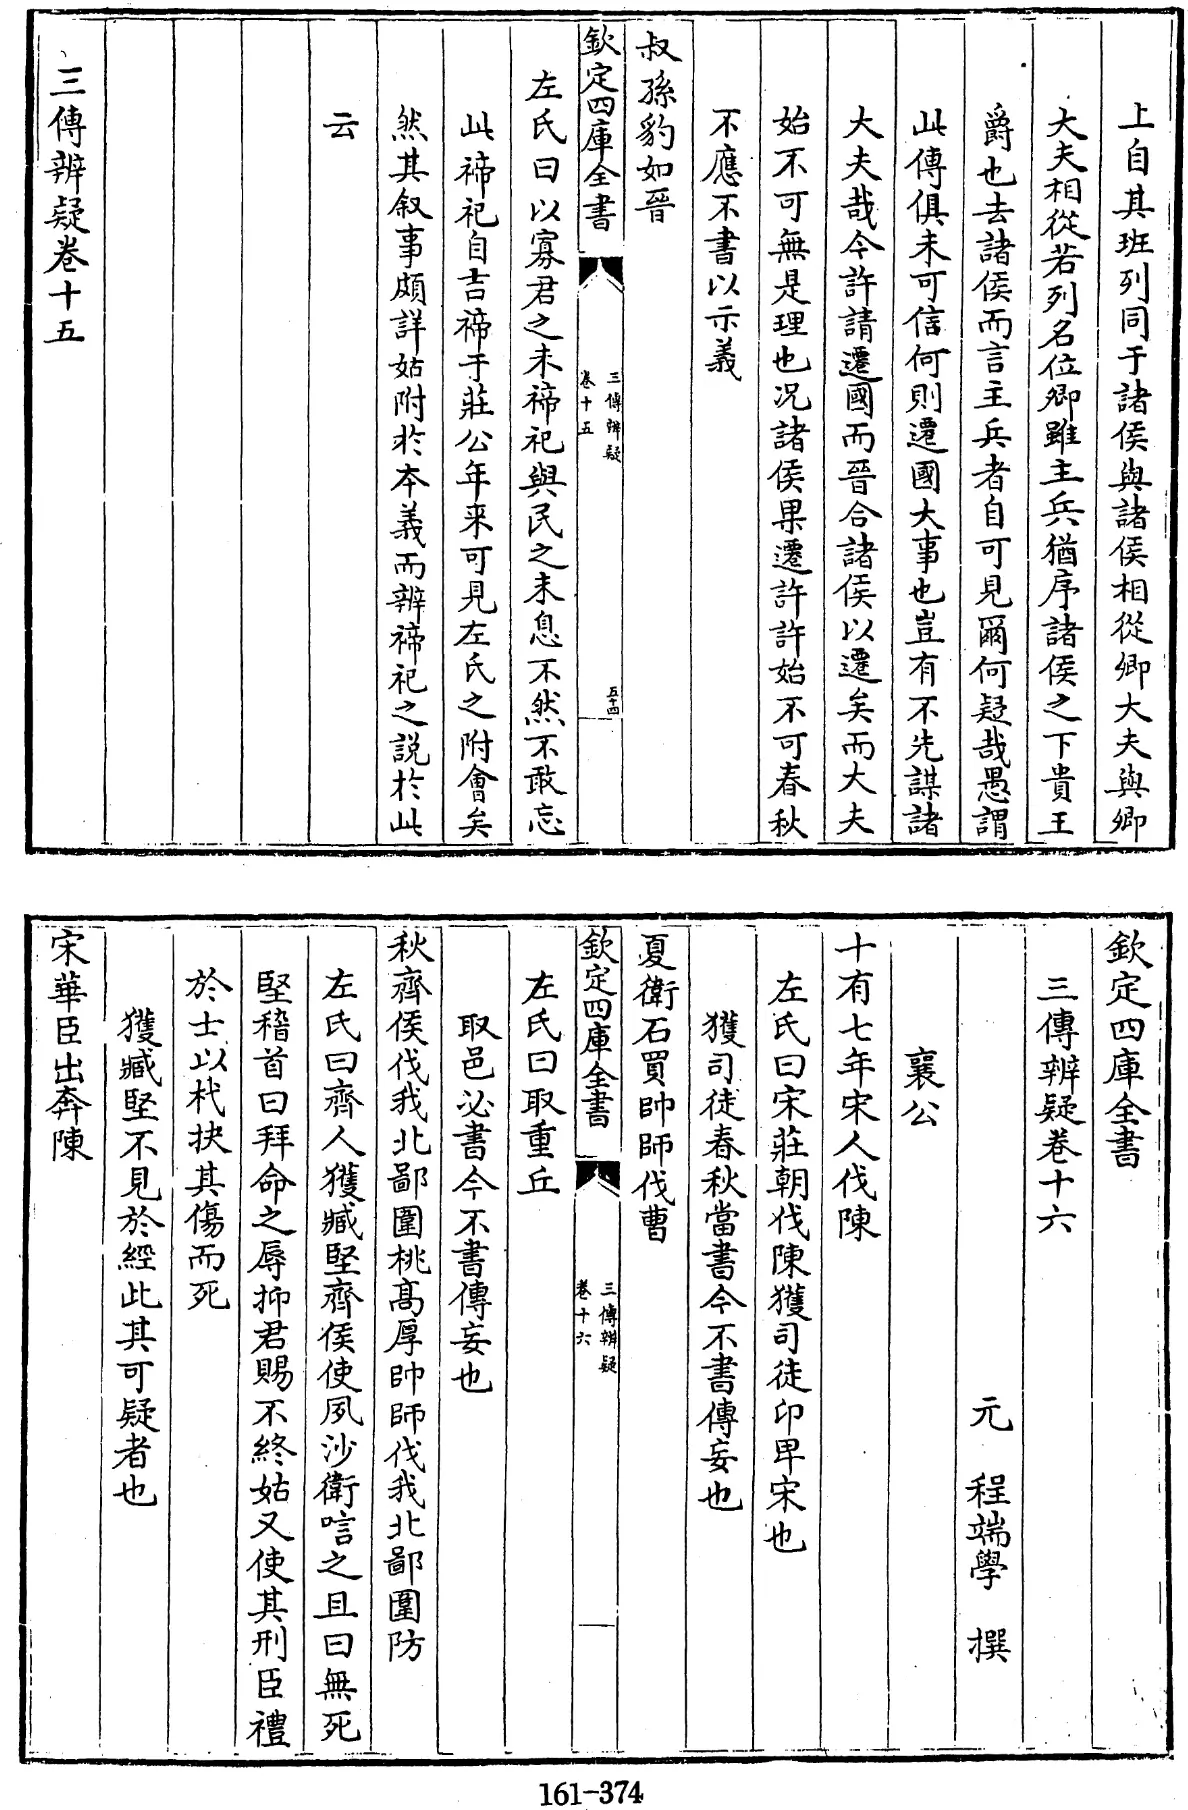 上自其班列同于諸侯與諸侯相從卿大夫與卿
大夫相從若列名位卿雖主兵猶序諸侯之下貴王
爵也去諸侯而言主兵者自可見爾何疑哉愚謂
此傳俱未可信何則遷國大事也豈有不先謀諸
大夫哉今許請遷國而晉合諸侯以遷矣而大夫
始不可無是理也况諸侯果遷許許始不可春秋
不應不書以示義
叔孫豹如晉
欽定四庫全書
三傳辨疑
卷十五
五十四
左氏曰以寡君之未禘祀與民之未息不然不敢忘
此禘祀自吉禘于莊公年来可見左氏之附會矣
然其叙事頗詳姑附於本義而辨禘祀之説於此
云
三傳辨疑卷十五
欽定四庫全書
三傳辨疑卷十六
元 程端學 撰
襄公
十有七年宋人伐陳
左氏曰宋莊朝伐陳獲司徒印卑宋也
獲司徒春秋當書今不書傳妄也
夏衛石買帥師伐曹
欽定四庫全書
三傳辨疑
卷十六
一
左氏曰取重丘
取邑必書今不書傳妄也
秋齊侯伐我北鄙圍桃高厚帥師伐我北鄙圍防
左氏曰齊人獲臧堅齊侯使夙沙衛唁之且曰無死
堅稽首曰拜命之辱抑君賜不終姑又使其刑臣禮
於士以杙抉其傷而死
獲臧堅不見於經此其可疑者也
宋華臣出奔陳
161-374